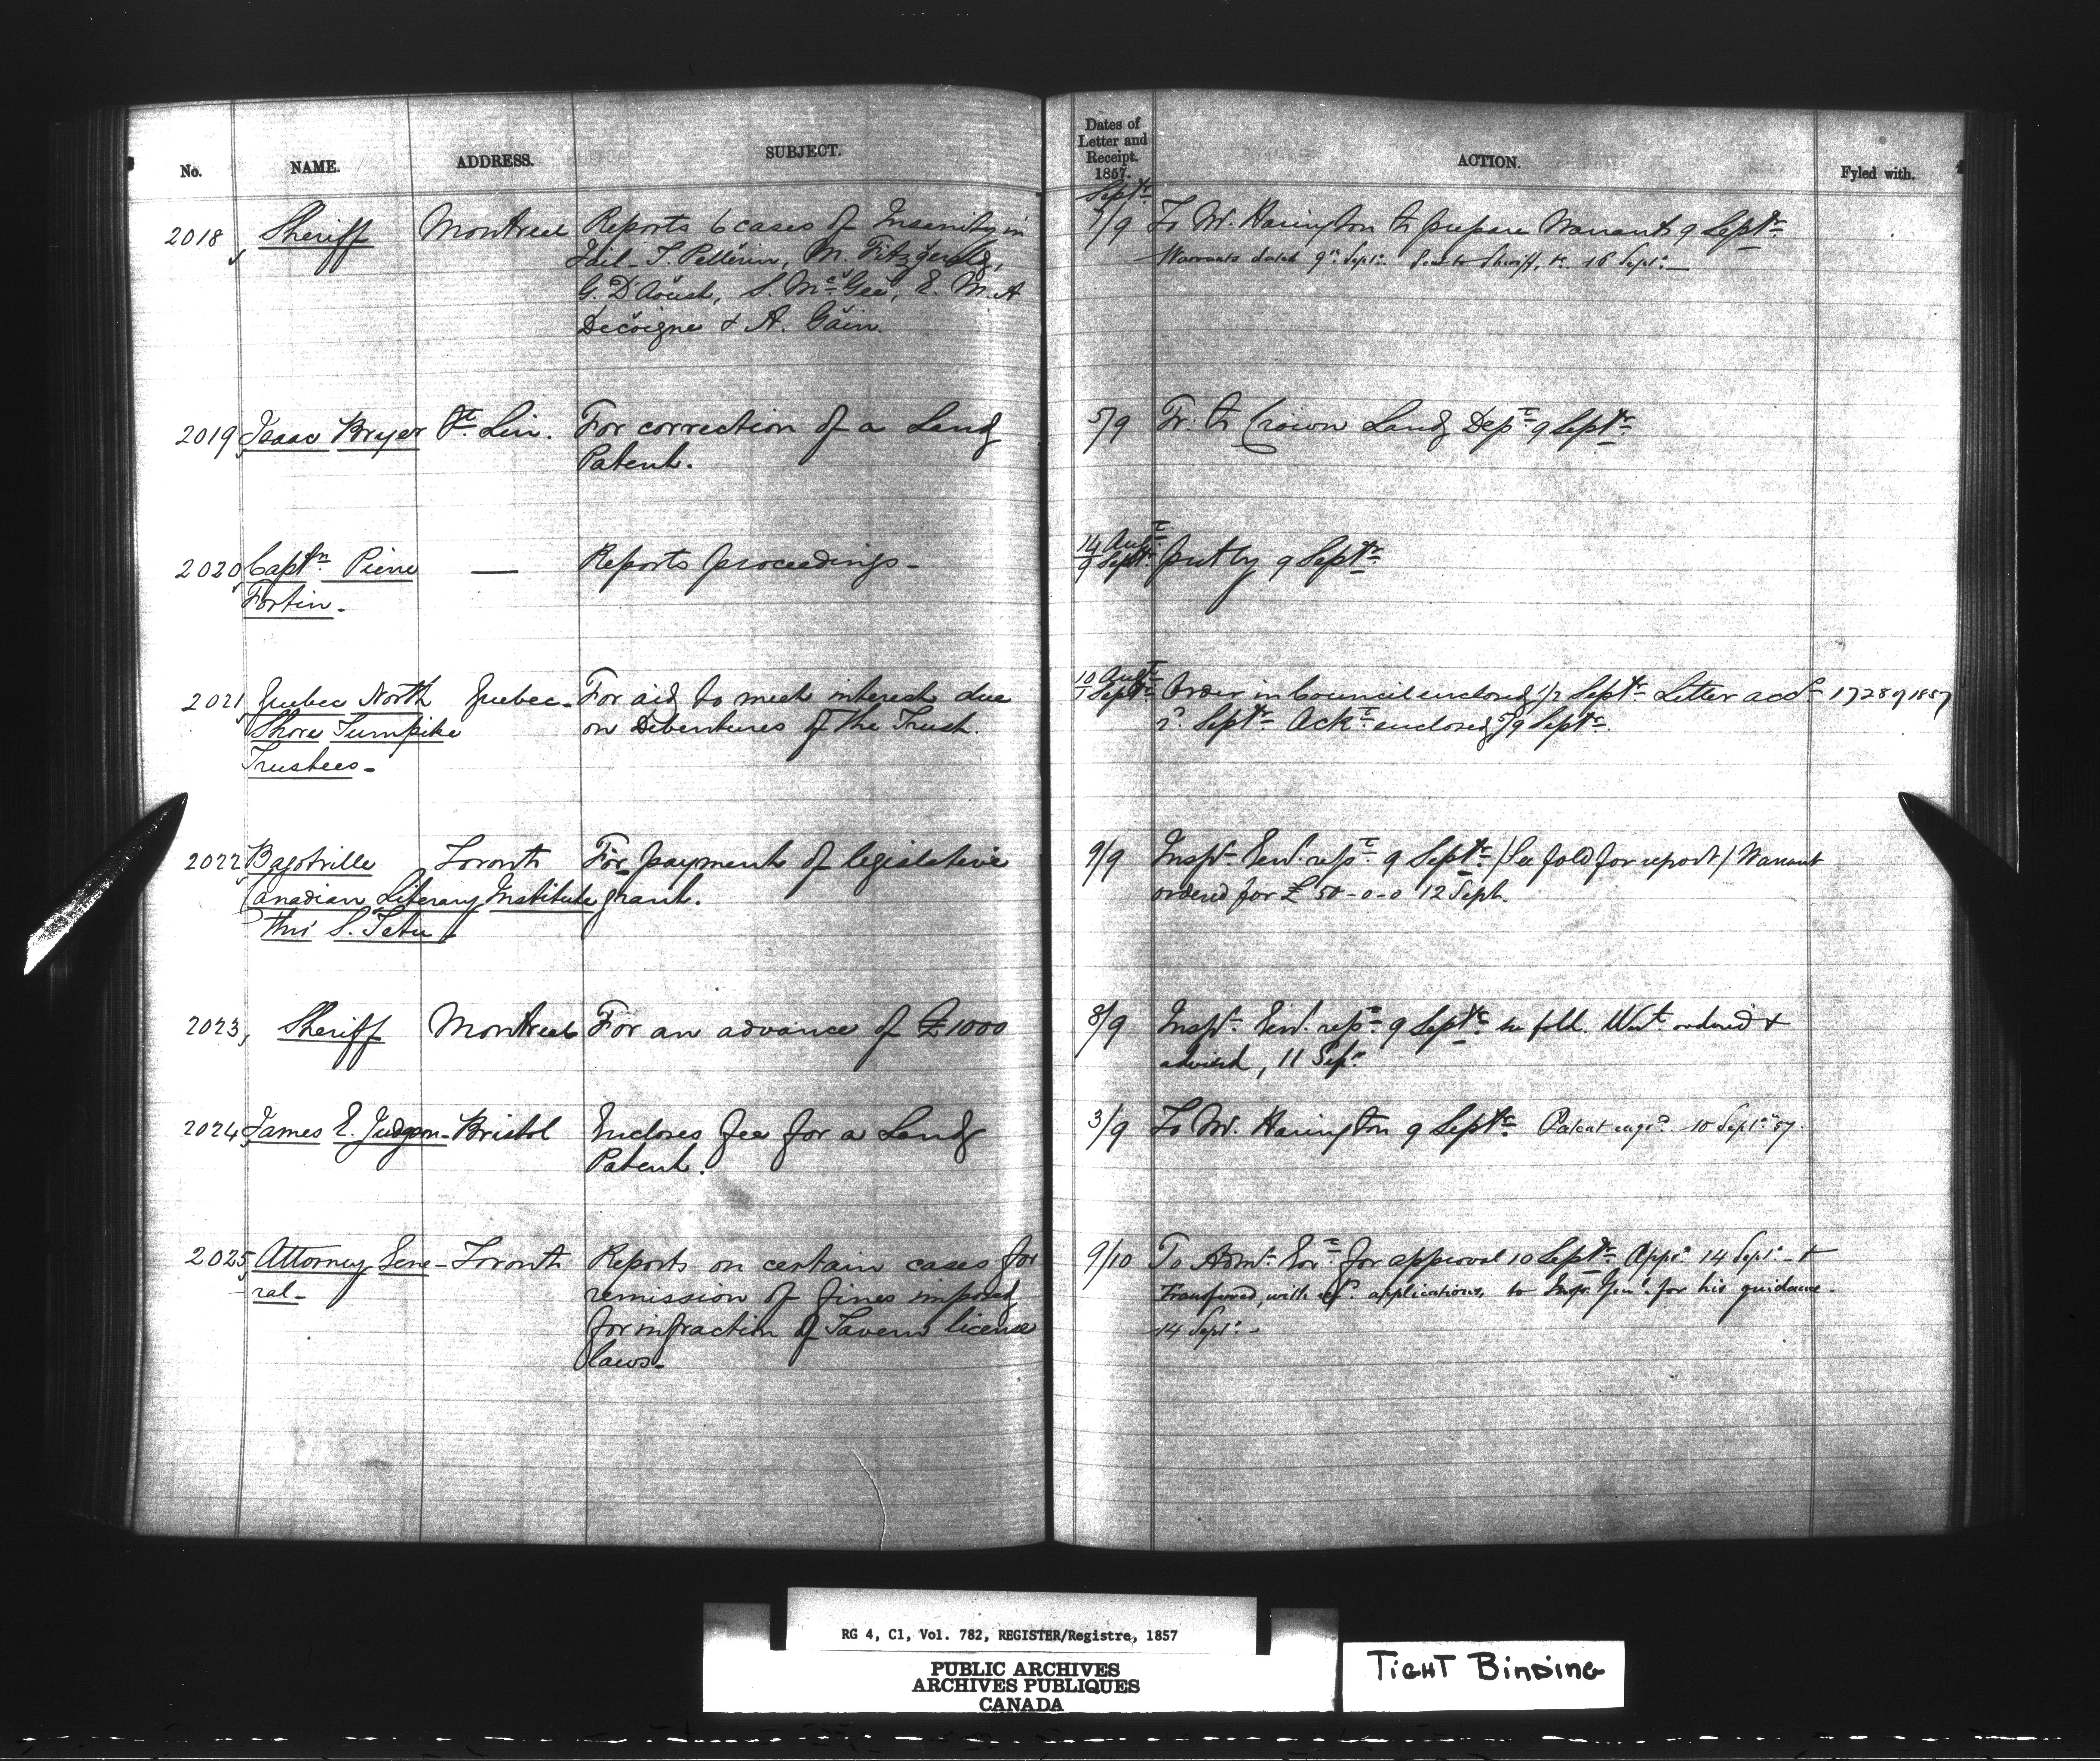 No. NAME. ADDRESS. SUBJECT.
Dates of
Letter and
Receipt.
1857.
ACTION. Fyled with.
Septr
2018 Sheriff Montreal Reports 6 cases of Insanity in 7/9 To Mr. Harington to prepare Warrants 9 Septr
Jail - T. Pellerin, M. Fitzgerald, Warrants dated 9th Septr. Sent to Sheriff, &c. 16 Septr.
G. D'Aoust, S. McGee, E. M. A
Decoigne & A. Gain.
2019 Isaac Bryer St. Lin. For correction of a Land 5/9 Tr. to Crown Land Dept 9 Septr
Patent.
2020 Captn Pierre — Reports proceedings - 14 Augt put by 9 Septr
Fortin - 9 Septr
2021 Quebec North Quebec - For aid to meet interest due 10 Augt Order in Council enclosed 1/2 Septr Letter 1728 of 1857
Shore Turnpike on Debentures of the Trust. 1 Septr Septr Ackt enclosed 5/9 Septr.
Trustees -
2022 Bagotville Toronto For payment of legislative 9/9 Inspr Genl. rept 9 Septr / See fold for report / Warrant
Canadian Literary Institute grant. ordered for £ 50-0-0 12 Sept.
thro' S. Tetu
2023, Sheriff Montreal For an advance of £1000 8/9 Inspr Genl. rept 9 Septr see fold. Wart ordered &
advised, 11 Sepr
2024 James E. Judgson - Bristol Encloses fee for a Land 3/9 To Mr. Harington 9 Septr Patent engd. 10 Septr 57.
Patent.
2025 Attorney Gene- Toronto Reports on certain cases for 9/10 To Admt. for approval 10 Septr Appd 14 Septr - &
ral - remission of fines imposed Transferred, with applications, to Inspr Genl. for his guidance.
for infraction of Tavern license 14 Septr. -
laws -
RG 4, C1, Vol. 782, REGISTER/Registre, 1857
PUBLIC ARCHIVES
ARCHIVES PUBLIQUES
CANADA
TIGHT BINDING